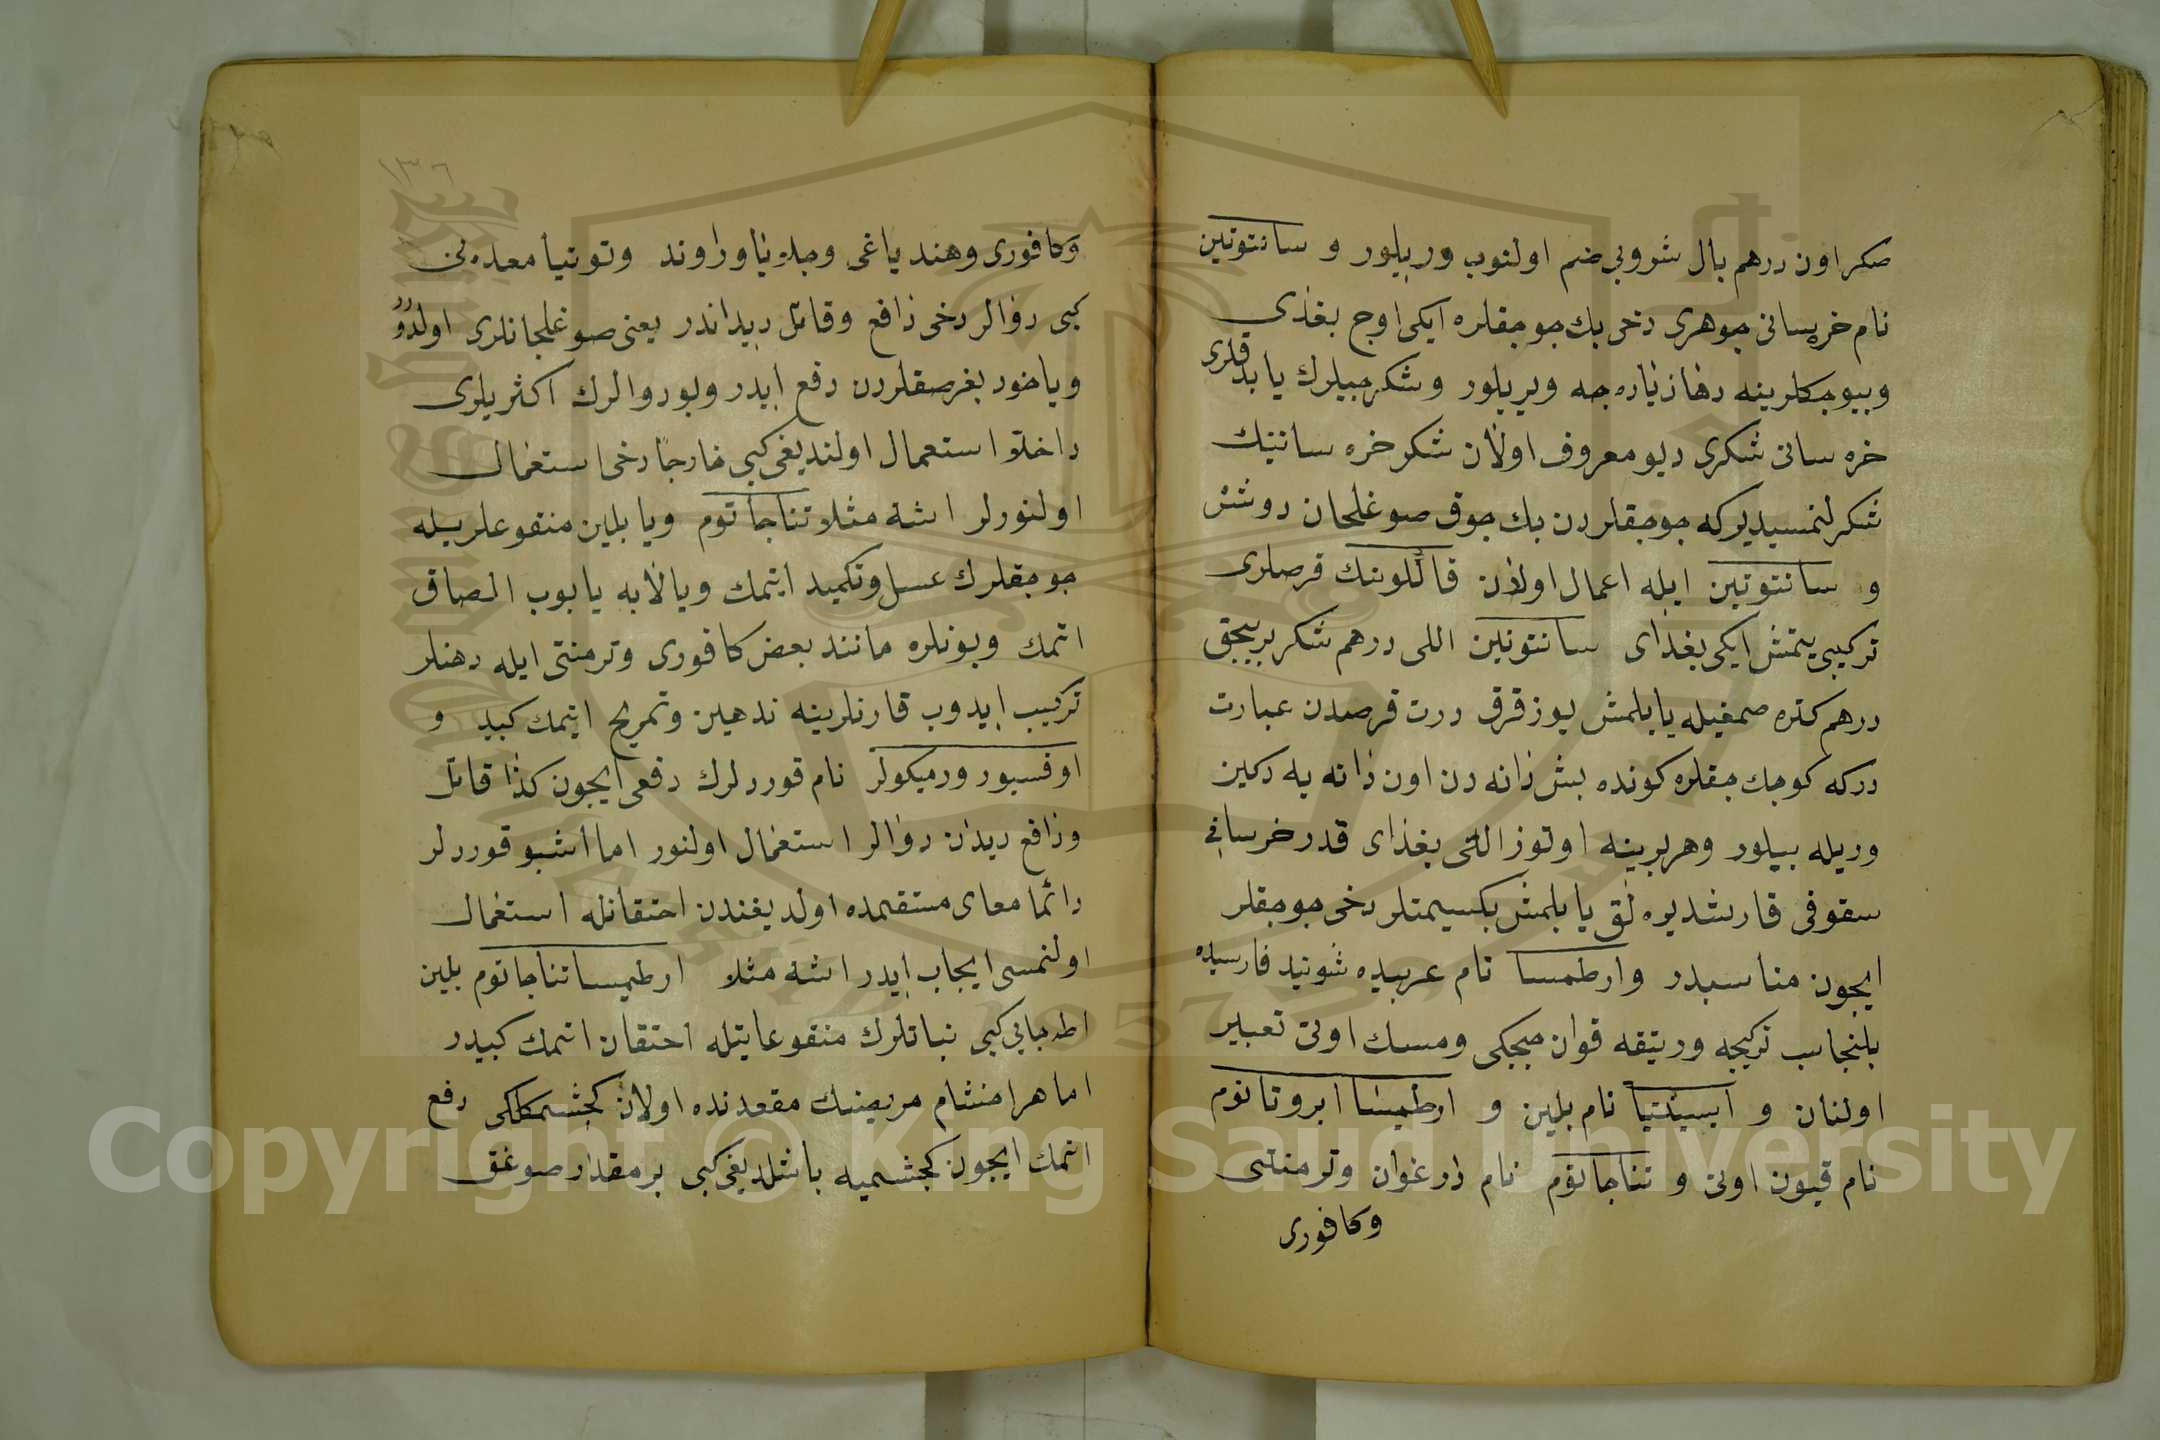 صكر اون درهم بال شروبى ضم اولنوب ويريلور و سانتونين
نام خره سانى جوهرى دخى بك جوجقلره ايكى اوج بغداى
وبيوجكلرينه دها زياده جه ويريلور وشكرجيلرك يابدقلرى
خره سانى شكرى ديو معروف اولان شكر خره سانينك
شكرلنمسيدركه جوجقلردن بك جوق صوغلجان دوشر
و سانتونين ايله اعمال اولان قرصلرى
تركيبى يتمش ايكى بغداى سانتونين اللى درهم شكر بر بچق
درهم كتره صمغيله يابلمش يوز قرق درت قرصدن عبارت
دركه كوجك جقلره كونده بش دانه دن اون دانه يه دكين
وريله بيلور وهر برينه اوتوز التى بغداى قدر خرسانى
سقوفى قارشديره لق يابلمش بكسيمتلر دخى جوجقلر
ايجون مناسبدر وارطمسا نام عربيده شونيد فارسيده
بلنجاسب تركيجه وريتقه قوان جيجكى ومسك اوتى تعبير
اولنان و ابسينتيا نام بلين و ارطميسا ابروتانوم
نام قيون اوتى و تناجاتوم نام درغوان وترمنتى
وكافورى
١٣٦
وكافورى وهند ياغى وجلا پاوراوند وتوتيا معدنى
كبى دوالر دخى دافع وقاتل ديداندر يعنى صوغلجانلرى اولدرر
وياخود بغرصقلردن دفع ايدر وبو دوالرك اكثريلرى
داخلا استعمال اولنديغى كبى خارجا دخى استعمال
اولنورلر اشته مثلا تناجاتوم ويا بلين منقوعلريله
جوجقلرك غسل وتكميد ايتمك ويا لابه يابوب الصاق
اتمك وبونلره مانند بعض كافورى وترمنتى ايله دهنلر
تركيب ايدوب قارنلرينه تدهين وتمريخ ايتمك كبيد و
اوقسيور ورميكولر نام قوردلرك دفعى ايجون كذا قاتل
ودافع ديدان دوالر استعمال اولنور اما اشبو قوردلر
دائما معاى مستقيمده اولديغندن احتقانله استعمال
اولنمسى ايجاب ايدر اشته مثلا ارطميسا تناجاتوم بلين
اطه جايى كبى نباتلرك منقوعايتله احتقان اتمك كبيدر
اما هر اخشام مريضنك مقعدنده اولان كجشمكلكى رفع
اتمك ايجون كجشميه باشلديغى كبى بر مقدار صوغق